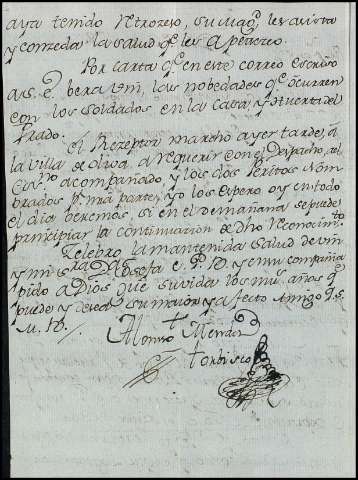 aya tenido retrozeso, su Mag.d les asista
y conzeda la salud q.e les apetezco.
Por carta q.e en este correo escrivo
a S. E. bera Vm, las nobedades q.e ocurren
con los soldados en la Casa, y Huerta del
Prado.
El Rezeptor marcho ayer tarde, a
la Villa de oliva a requerir con el Despacho, al
acompañado y los dos Peritos nom
brados p.r mi parte, y los espero oy en todo
el dia beremos, si en el de mañana se puede
prinzipiar la continuazion de dho reconocim.to
Zelebro la mantenida salud de Vm
y mi s.ra D.a Josefa C. P. B. y en su compañia
pido a Dios que su vida los m.s años q.e
puede y desea su maior y afecto Amigo q. s.
m. b.
Alonso Mendez